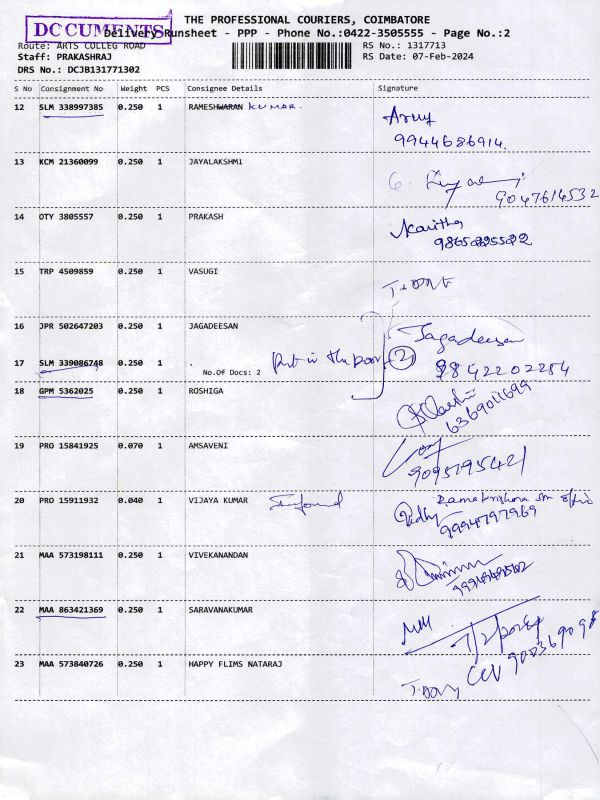 DOCUMENTS
THE PROFESSIONAL COURIERS, COIMBATORE
Delivery Runsheet - PPP - Phone No.:0422-3505555 - Page No.:2
Route: ARTS COLLEG ROAD RS No.: 1317713
Staff: PRAKASHRAJ RS Date: 07-Feb-2024
DRS No.: DCJB131771302
S No Consignment No Weight PCS Consignee Details Signature
12 SLM 338997385 0.250 1 RAMESHWARAN KUMAR.
9944686914.
13 KCM 21360099 0.250 1 JAYALAKSHMI
9047614532
14 OTY 3805557 0.250 1 PRAKASH Kavitha
15 TRP 4509859 0.250 1 VASUGI
16 JPR 502647203 0.250 1 JAGADEESAN Jagadeesan
17 SLM 339086748 0.250 1 . Put in the door 2 9842202284
No.Of Docs: 2
18 GPM 5362025 0.250 1 ROSHIGA
6369011699
19 PRO 15841925 0.070 1 AMSAVENI
9095795421
20 PRO 15911932 0.040 1 VIJAYA KUMAR
9994797969
21 MAA 573198111 0.250 1 VIVEKANANDAN
22 MAA 863421369 0.250 1 SARAVANAKUMAR
7/2/2024
23 MAA 573840726 0.250 1 HAPPY FLIMS NATARAJ